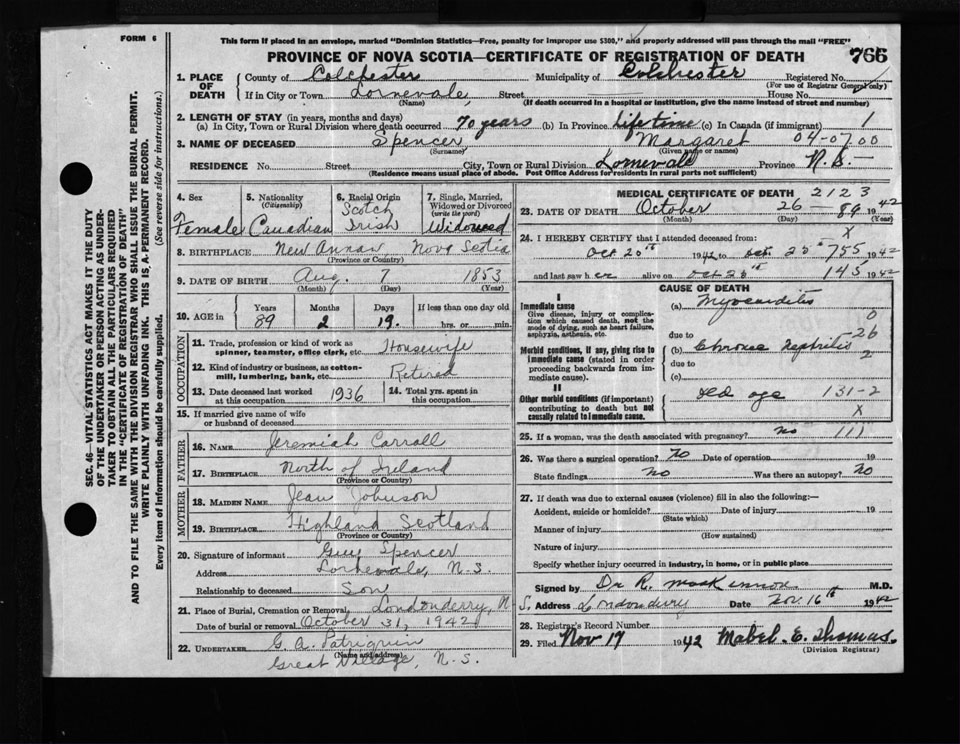 FORM 6
This form if placed in an envelope, marked "Dominion Statistics—Free, penalty for improper use $300," and properly addressed will pass through the mail "FREE"
PROVINCE OF NOVA SCOTIA—CERTIFICATE OF REGISTRATION OF DEATH 766
1. PLACE OF DEATH
County of Colchester Municipality of Colchester Registered No.
(For use of Registrar General only)
If in City or Town Lornevale, Street House No.
(Name) (If death occurred in a hospital or institution, give the name instead of street and number)
2. LENGTH OF STAY (in years, months and days)
(a) In City, Town or Rural Division where death occurred 70 years (b) In Province Life time (c) In Canada (if immigrant) 1
3. NAME OF DECEASED Spencer Margaret 04-07.00
(Surname) (Given name or names)
RESIDENCE No. Street City, Town or Rural Division Lornevale Province N.S.—
(Residence means usual place of abode. Post Office Address for residents in rural parts not sufficient)
4. Sex Female
5. Nationality (Citizenship) Canadian
6. Racial Origin Scotch Irish
7. Single, Married, Widowed or Divorced (write the word) Widowed
8. BIRTHPLACE New Annan Nova Scotia
(Province or Country)
9. DATE OF BIRTH Aug. 7 1853
(Month) (Day) (Year)
10. AGE in Years Months Days If less than one day old
89 2 19. hrs. or min.
OCCUPATION
11. Trade, profession or kind of work as spinner, teamster, office clerk, etc. Housewife
12. Kind of industry or business, as cotton-mill, lumbering, bank, etc. Retired
13. Date deceased last worked at this occupation 1936
14. Total yrs. spent in this occupation
15. If married give name of wife or husband of deceased
FATHER
16. NAME Jeremiah Carroll
17. BIRTHPLACE North of Ireland
(Province or Country)
MOTHER
18. MAIDEN NAME Jean Johnson
19. BIRTHPLACE Highland Scotland
(Province or Country)
20. Signature of informant Guy Spencer
Address Lornevale, N.S.
Relationship to deceased Son
21. Place of Burial, Cremation or Removal Londonderry, N
Date of burial or removal October 31, 1942
22. UNDERTAKER G. A. Patriquin
(Name and address)
Great Village, N.S.
MEDICAL CERTIFICATE OF DEATH 2123
23. DATE OF DEATH October 26 — 89 1942
(Month) (Day) (Year)
X
24. I HEREBY CERTIFY that I attended deceased from:
Oct 20th 1942 to Oct. 25th 755 1942
and last saw her alive on Oct 20th 145 1942
CAUSE OF DEATH
I
Immediate cause
Give disease, injury or complication which caused death, not the mode of dying, such as heart failure, asphyxia, asthenia, etc.
(a) Myocarditis
0
due to 26
Morbid conditions, if any, giving rise to immediate cause (stated in order proceeding backwards from immediate cause).
(b) Chronic Nephritis 2
due to
(c)
II
Other morbid conditions (if important) contributing to death but not causally related to immediate cause.
old age 131-2
X
25. If a woman, was the death associated with pregnancy? no 111
26. Was there a surgical operation? No Date of operation 19
State findings No Was there an autopsy? No
27. If death was due to external causes (violence) fill in also the following:—
Accident, suicide or homicide? Date of injury 19
(State which)
Manner of injury
(How sustained)
Nature of injury
Specify whether injury occurred in industry, in home, or in public place
Signed by Dr R. MacKinnon M.D.
Address Londonderry Date Nov. 16th 1942
28. Registrar's Record Number
29. Filed Nov 17 1942 Mabel. E. Thomas.
(Division Registrar)
SEC. 46—VITAL STATISTICS ACT MAKES IT THE DUTY
OF THE UNDERTAKER OR PERSON ACTING AS UNDER-
TAKER TO OBTAIN ALL THE PARTICULARS REQUIRED
IN THE "CERTIFICATE OF REGISTRATION OF DEATH"
AND TO FILE THE SAME WITH THE DIVISION REGISTRAR WHO SHALL ISSUE THE BURIAL PERMIT.
WRITE PLAINLY WITH UNFADING INK. THIS IS A PERMANENT RECORD.
Every item of information should be carefully supplied. (See reverse side for instructions.)